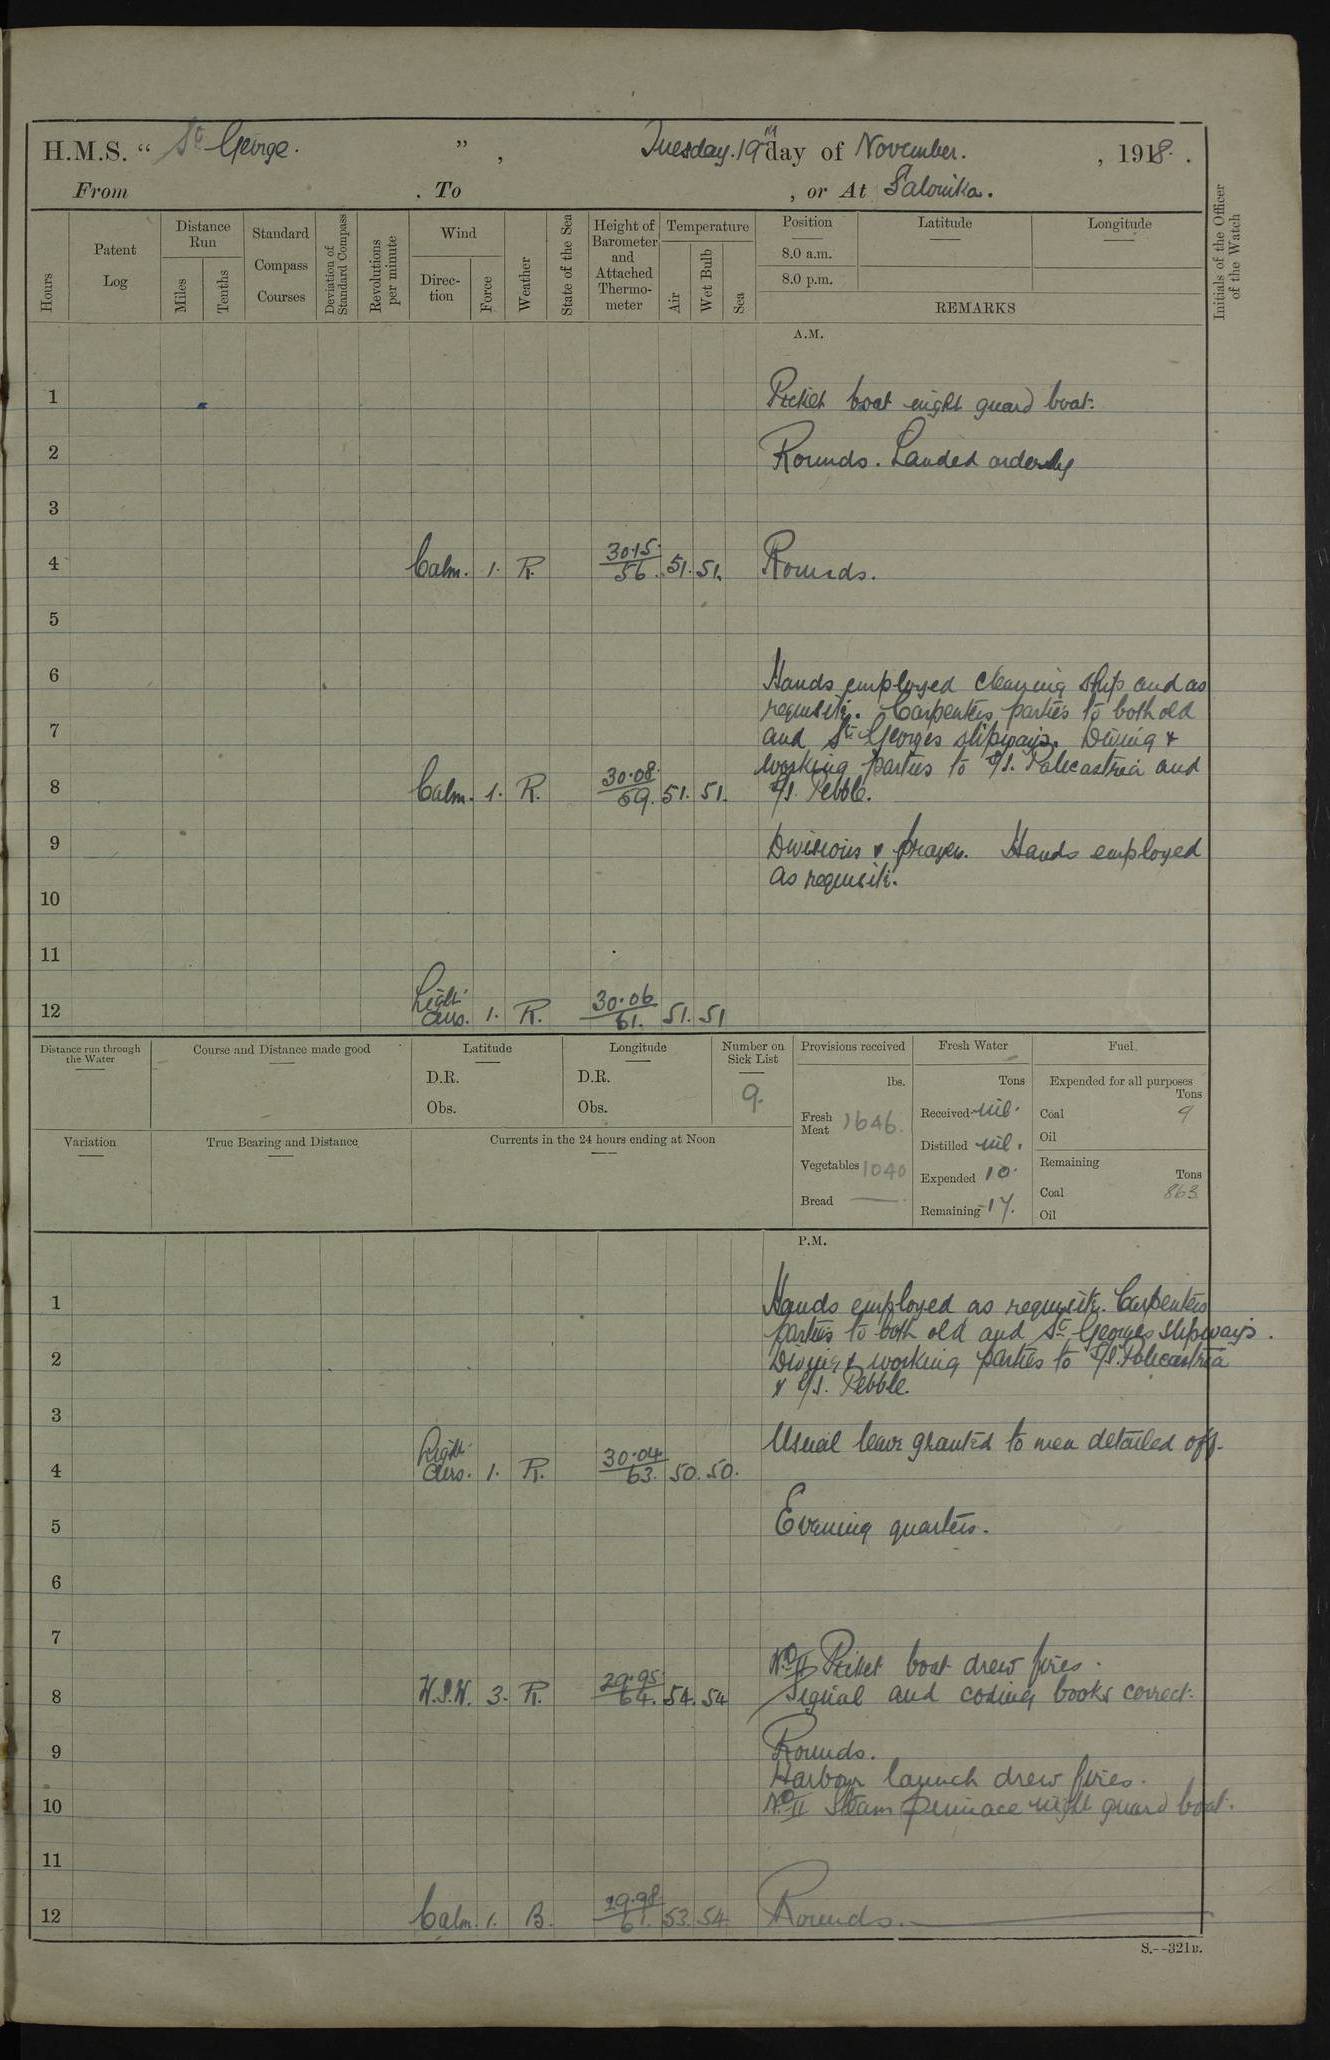 H.M.S. “ St George. ” , Tuesday. 19th day of November. , 1918.
From . To , or At Salonika.
Hours
Patent Log
Distance Run
Miles
Tenths
Standard Compass Courses
Deviation of Standard Compass
Revolutions per minute
Wind
Direction
Force
Weather
State of the Sea
Height of Barometer and Attached Thermometer
Temperature
Air
Wet Bulb
Sea
Position
8.0 a.m.
8.0 p.m.
Latitude
Longitude
REMARKS
Initials of the Officer of the Watch
A.M.
1 Picket boat night guard boat.
2 Rounds. Landed orderly
3
4 Calm. 1. R. 30.15. 56. 51. 51. Rounds.
5
6 Hands employed cleaning ship and as
requisite. Carpenters parties to both old
7 and St Georges slipways. Diving &
working parties to S/S. Policastria and
8 Calm. 1. R. 30.08. 59. 51. 51. S/S. Pebble.
9 Divisions & prayers. Hands employed
as requisite.
10
11
12 Light airs. 1. R. 30.06 61. 51. 51
Distance run through the Water
Course and Distance made good
Latitude
D.R.
Obs.
Longitude
D.R.
Obs.
Number on Sick List
9.
Provisions received
lbs.
Fresh Meat 1646.
Vegetables 1040
Bread —
Fresh Water
Tons
Received nil.
Distilled nil.
Expended 10.
Remaining 17.
Fuel
Expended for all purposes
Tons
Coal 9
Oil
Remaining
Tons
Coal 863
Oil
Variation
True Bearing and Distance
Currents in the 24 hours ending at Noon
P.M.
1 Hands employed as requisite. Carpenters
parties to both old and St Georges slipways.
2 Diving & working parties to S/S. Policastria
& S/S. Pebble.
3
Usual leave granted to men detailed off.
4 Light airs. 1. R. 30.04 63. 50. 50.
5 Evening quarters.
6
7
No II Picket boat drew fires.
8 W.S.W. 3. R. 29.95 64. 54. 54 Signal and coding books correct.
9 Rounds.
Harbour launch drew fires.
10 No II Steam pinnace night guard boat.
11
12 Calm. 1. B. 29.98 61. 53. 54. Rounds.
S.--321B.